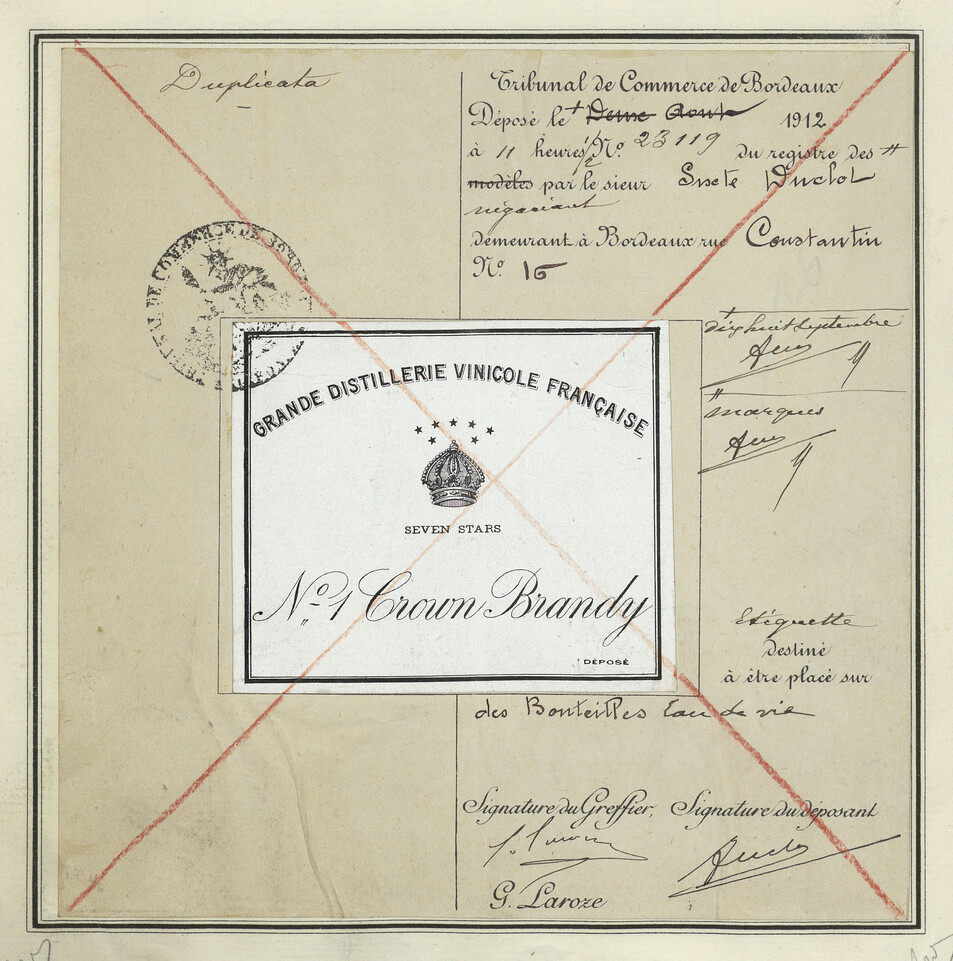 Duplicata
Tribunal de Commerce de Bordeaux
Déposé le + Deux Aout 1912
à 11 heures 1/2 No. 23119 du registre des #
modèles par le sieur Sucte Duclot
négociant
demeurant à Bordeaux rue Constantin
No. 16
+ dixhuit Septembre
# marques
GRANDE DISTILLERIE VINICOLE FRANÇAISE
SEVEN STARS
No. 1 Crown Brandy
DÉPOSÉ
Etiquette
destiné
à être placé sur
des Bouteilles Eau de vie
Signature du Greffier, Signature du déposant
G. Laroze